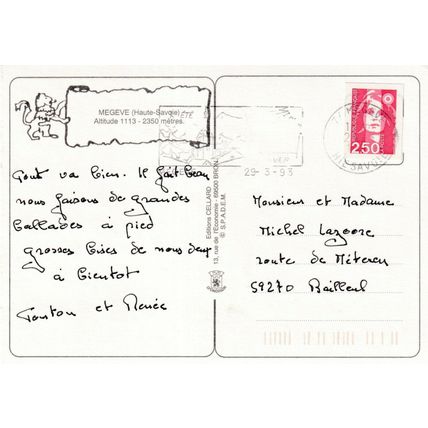 MEGEVE (Haute-Savoie)
Altitude 1113 - 2350 mètres.
ÉTÉ
HIVER
29-3-93
HTE SAVOIE
2,50
Tout va bien. Il fait beau
nous faisons de grandes
ballades à pied
grosses bises de nous deux
à bientot
Tonton et Renée
Editions CELLARD
13, rue de l'Economie - 69500 BRON
© S.P.A.D.E.M.
Monsieur et Madame
Michel
route de Méteren
59270 Bailleul